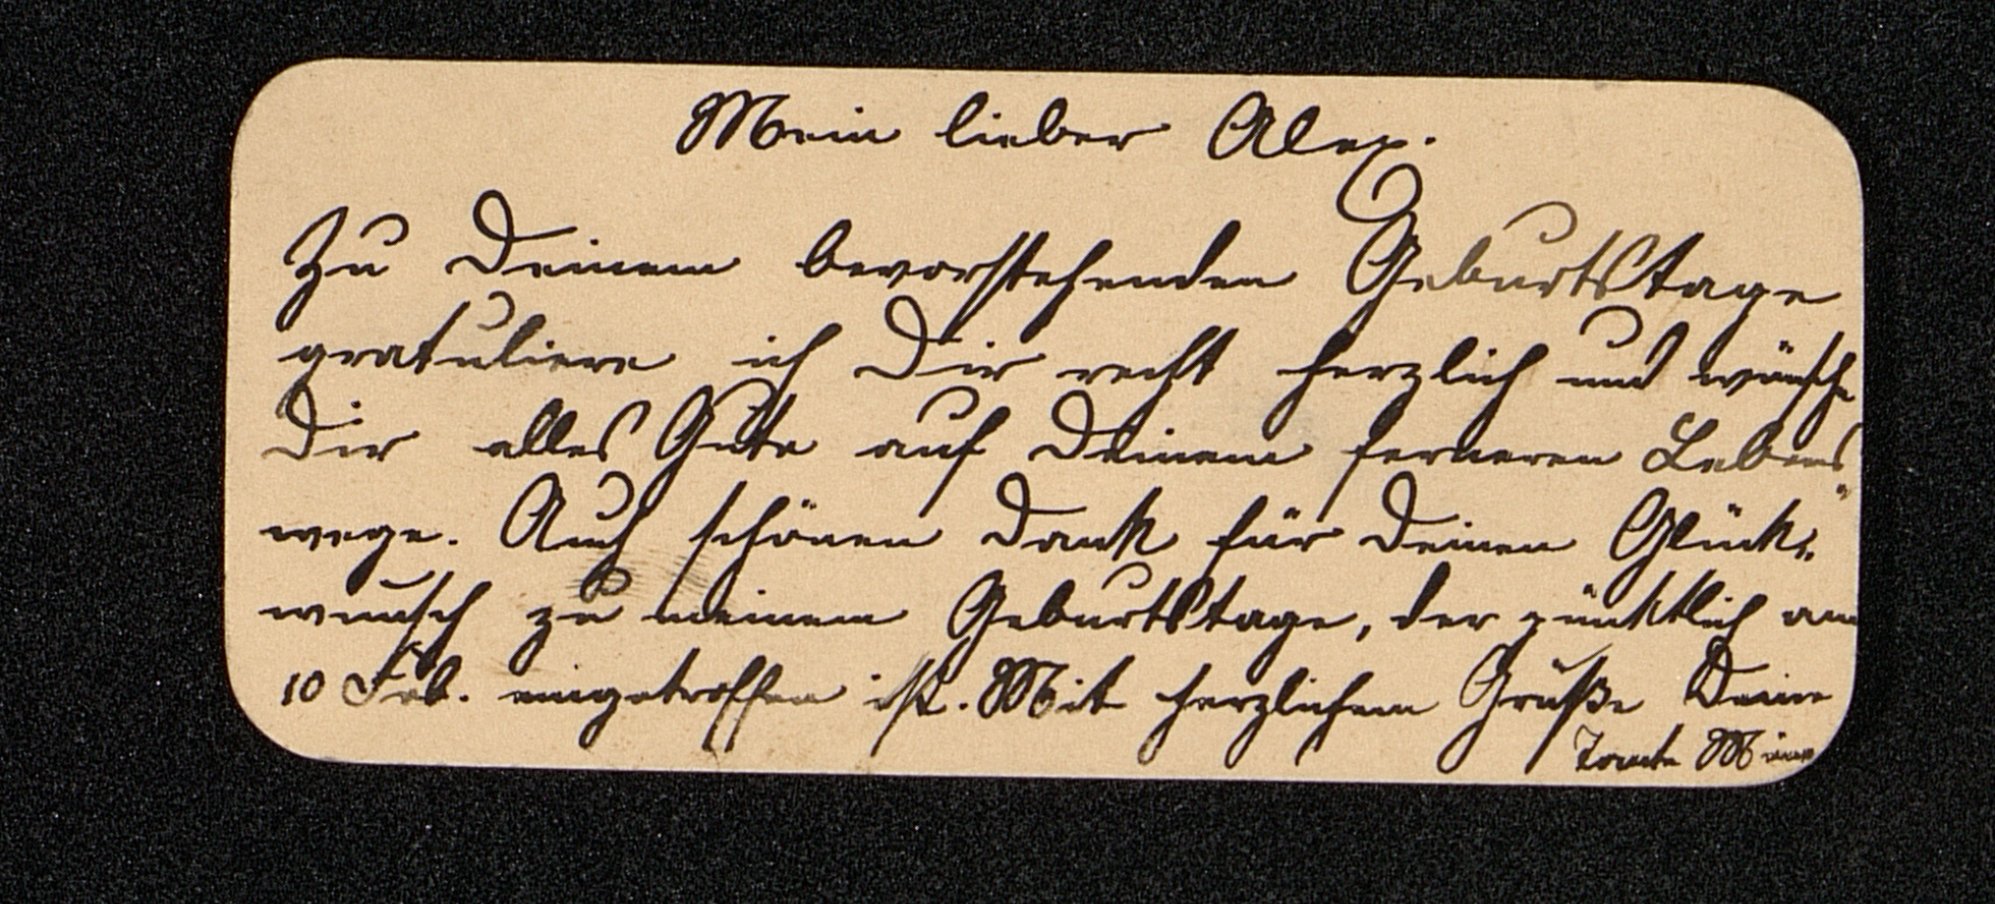 Mein lieber Alex.
Zu Deinem bevorstehenden Geburtstage
gratuliere ich Dir recht herzlich und wünsche
Dir alles Gute auf Deinem ferneren Lebens
wege. Auch schönen Dank für Deinen Glück-
wunsch zu meinem Geburtstage, der pünktlich am
10 Feb. eingetroffen ist. Mit herzlichem Gruße Deine
Tante